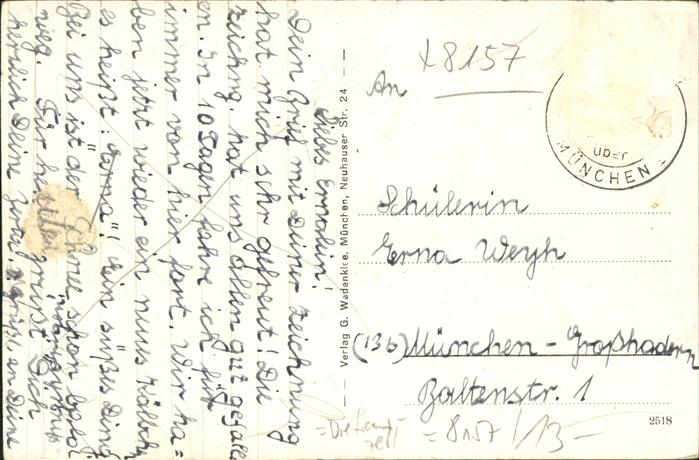 Liebes Ernalein!
Dein Brief mit Deiner Zeichnung
hat mich sehr gefreut! Die
Zeichng. hat uns allen gut gefalle
en. In 10 Tagen fahre ich für
immer von hier fort. Wir ha=
ben jetzt wieder ein neues Kälbchen
es heißt: "Erna"! Ein süßes Ding
Bei uns ist der Schnee schon
weg. Für heute grüßt Dich
herzlich Deine Grüße an Deine
Verlag G. Wadenklee, München, Neuhauser Str. 24
8157
An
über
MÜNCHEN
Schülerin
Erna Weyh
(13b) München-Großhadern
Baltenstr. 1
2518
= 8157